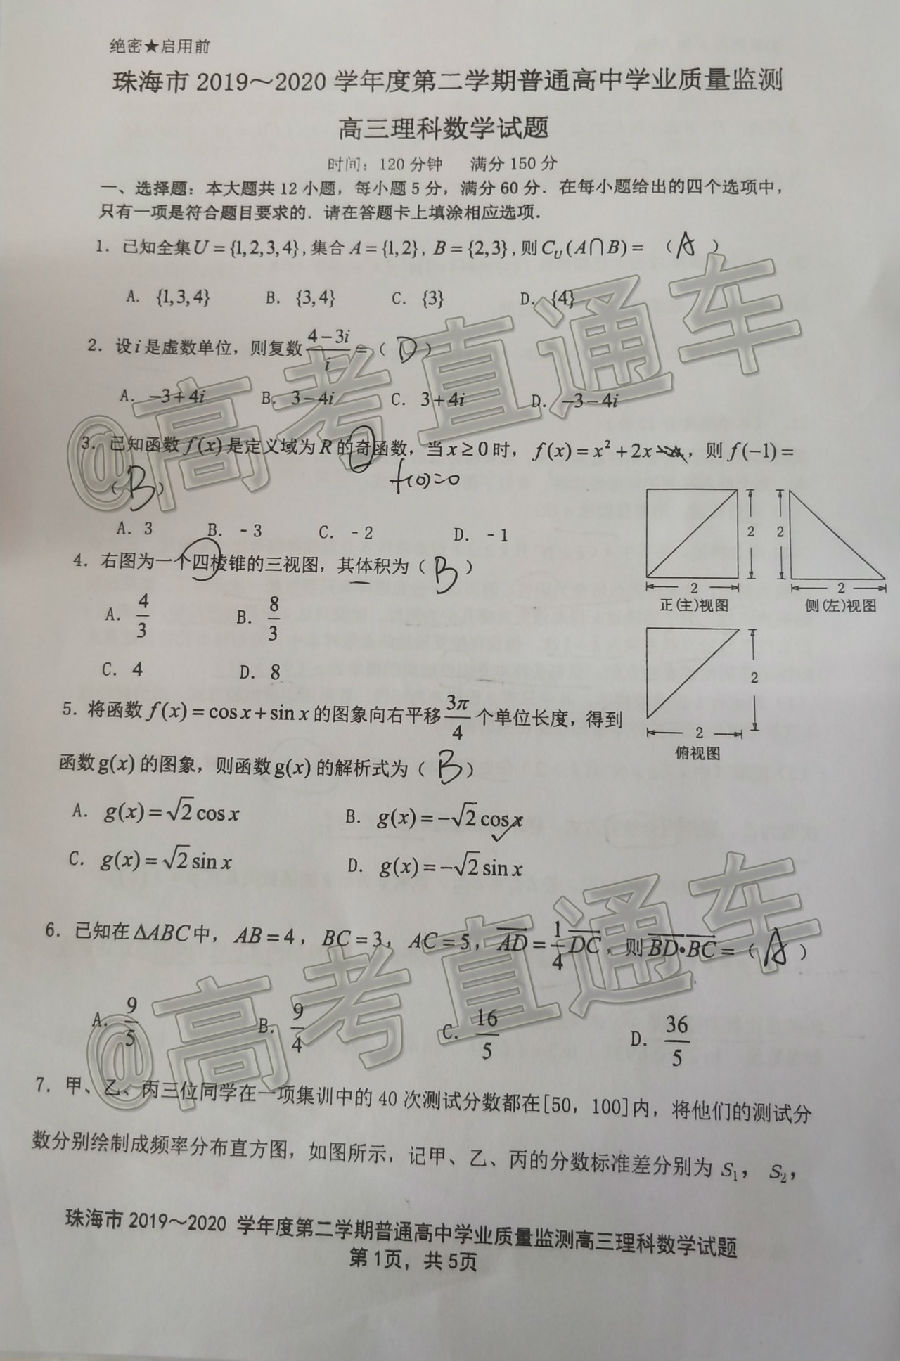 绝密★启用前
珠海市 2019～2020 学年度第二学期普通高中学业质量监测
高三理科数学试题
时间：120 分钟 满分 150 分
一、选择题：本大题共 12 小题，每小题 5 分，满分 60 分．在每小题给出的四个选项中，
只有一项是符合题目要求的．请在答题卡上填涂相应选项．
1．已知全集U = {1,2,3,4}，集合 A = {1,2}，B = {2,3}，则 C_U (A∩B) = （ A ）
A．{1,3,4} B．{3,4} C．{3} D．{4}
2．设 i 是虚数单位，则复数 (4-3i)/i =（ D ）
A．-3+4i B．3-4i C．3+4i D．-3-4i
3．已知函数 f(x) 是定义域为 R 的奇函数，当 x ≥ 0 时，f(x) = x² + 2x ，则 f(-1) =
（ B ） f(0)=0
A．3 B．-3 C．-2 D．-1
4．右图为一个四棱锥的三视图，其体积为（ B ）
A．4/3 B．8/3
C．4 D．8
2 2
2 2
正(主)视图 侧(左)视图
2
2
俯视图
5．将函数 f(x) = cos x + sin x 的图象向右平移 3π/4 个单位长度，得到
函数 g(x) 的图象，则函数 g(x) 的解析式为（ B ）
A．g(x) = √2 cos x B．g(x) = -√2 cos x
C．g(x) = √2 sin x D．g(x) = -√2 sin x
6．已知在 ΔABC 中，AB = 4，BC = 3，AC = 5，AD = 1/4 DC，则 BD·BC = （ A ）
A．9/5 B．9/4 C．16/5 D．36/5
7．甲、乙、丙三位同学在一项集训中的 40 次测试分数都在[50，100]内，将他们的测试分
数分别绘制成频率分布直方图，如图所示，记甲、乙、丙的分数标准差分别为 S₁，S₂，
珠海市 2019～2020 学年度第二学期普通高中学业质量监测高三理科数学试题
第 1页，共 5页
@高考直通车
@高考直通车